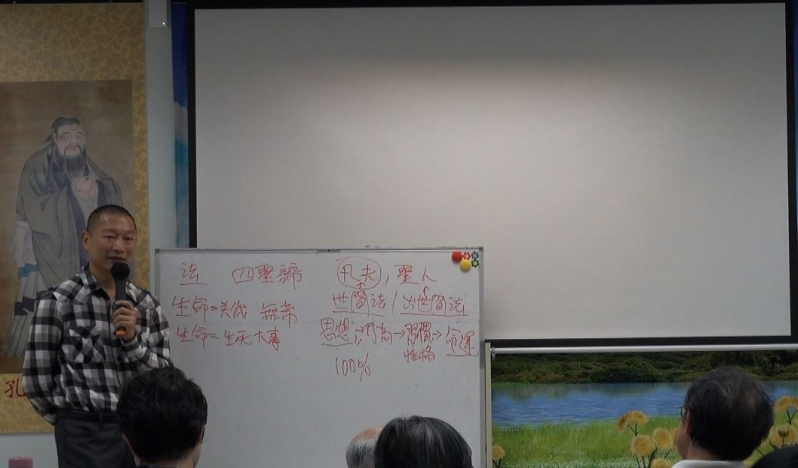 法 四聖諦 凡夫,聖人
生命=美歲 無常 世間法/出世間法
生命=生死大事 思想→行為→習慣→命運
性格
100%
孔